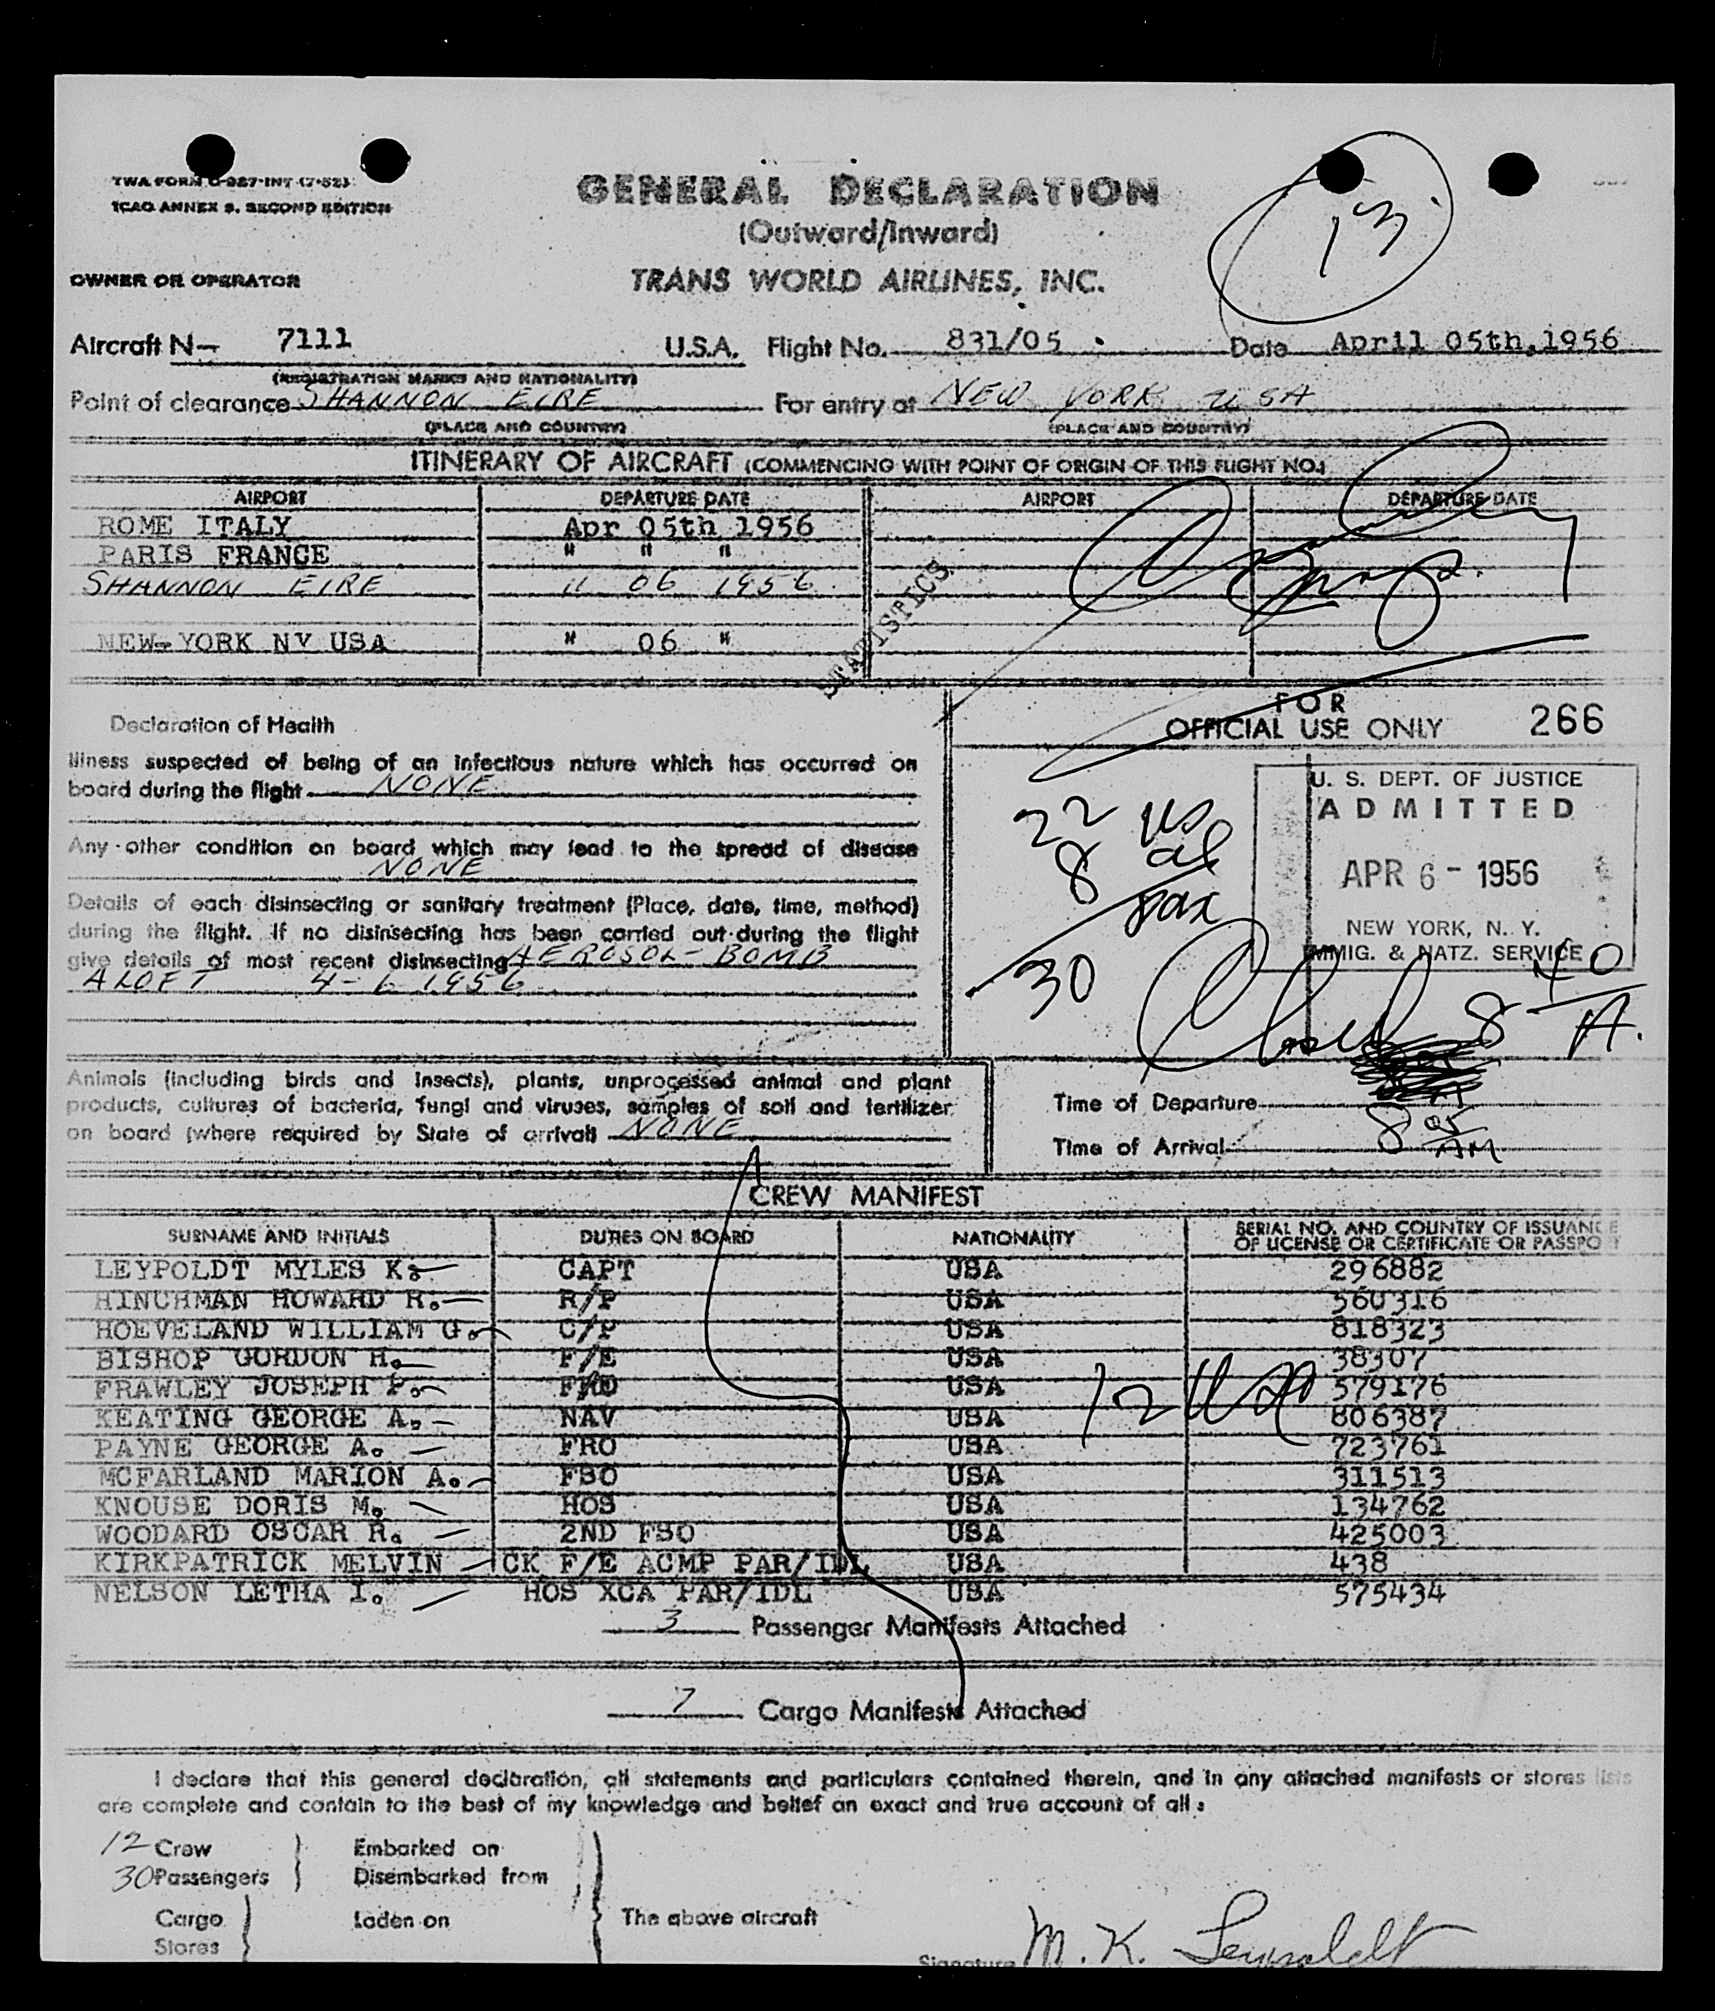 TWA FORM O-987-INT (7-52)
ICAO ANNEX 9, SECOND EDITION
GENERAL DECLARATION
(Outward/Inward)
13
OWNER OR OPERATOR TRANS WORLD AIRLINES, INC.
Aircraft N— 7111 U.S.A. Flight No. 831/05 Date April 05th, 1956
(REGISTRATION MARKS AND NATIONALITY)
Point of clearance SHANNON EIRE For entry at NEW YORK USA
(PLACE AND COUNTRY) (PLACE AND COUNTRY)
ITINERARY OF AIRCRAFT (COMMENCING WITH POINT OF ORIGIN OF THIS FLIGHT NO.)
AIRPORT DEPARTURE DATE AIRPORT DEPARTURE DATE
ROME ITALY Apr 05th 1956
PARIS FRANCE " " "
SHANNON EIRE " 06 1956
NEW-YORK NY USA " 06 "
STATISTICS
Declaration of Health
Illness suspected of being of an infectious nature which has occurred on
board during the flight NONE
Any other condition on board which may lead to the spread of disease
NONE
Details of each disinsecting or sanitary treatment (Place, date, time, method)
during the flight. If no disinsecting has been carried out during the flight
give details of most recent disinsecting AEROSOL-BOMB
ALOFT 4-6 1956
FOR
OFFICIAL USE ONLY 266
U. S. DEPT. OF JUSTICE
ADMITTED
APR 6 - 1956
NEW YORK, N. Y.
IMMIG. & NATZ. SERVICE
22 US
8 al
30 pax
8 40
A.
Animals (including birds and insects), plants, unprocessed animal and plant
products, cultures of bacteria, fungi and viruses, samples of soil and fertilizer
on board (where required by State of arrival) NONE
Time of Departure
Time of Arrival 8 05 AM
CREW MANIFEST
SURNAME AND INITIALS DUTIES ON BOARD NATIONALITY SERIAL NO. AND COUNTRY OF ISSUANCE
OF LICENSE OR CERTIFICATE OR PASSPORT
LEYPOLDT MYLES K. CAPT USA 296882
HINCHMAN HOWARD R. R/P USA 560316
HOEVELAND WILLIAM G. C/P USA 818323
BISHOP GORDON H. F/E USA 38307
FRAWLEY JOSEPH P. USA 579176
KEATING GEORGE A. NAV USA 806387
PAYNE GEORGE A. FRO USA 723761
MCFARLAND MARION A. FSO USA 311513
KNOUSE DORIS M. HOS USA 134762
WOODARD OSCAR R. 2ND FSO USA 425003
KIRKPATRICK MELVIN CK F/E ACMP PAR/IDL USA 438
NELSON LETHA I. HOS XCA PAR/IDL USA 575434
12
3 Passenger Manifests Attached
7 Cargo Manifests Attached
I declare that this general declaration, all statements and particulars contained therein, and in any attached manifests or stores lists
are complete and contain to the best of my knowledge and belief an exact and true account of all:
12 Crew Embarked on
30 Passengers Disembarked from
Cargo Laden on The above aircraft
Stores
Signature M. K. Leypoldt